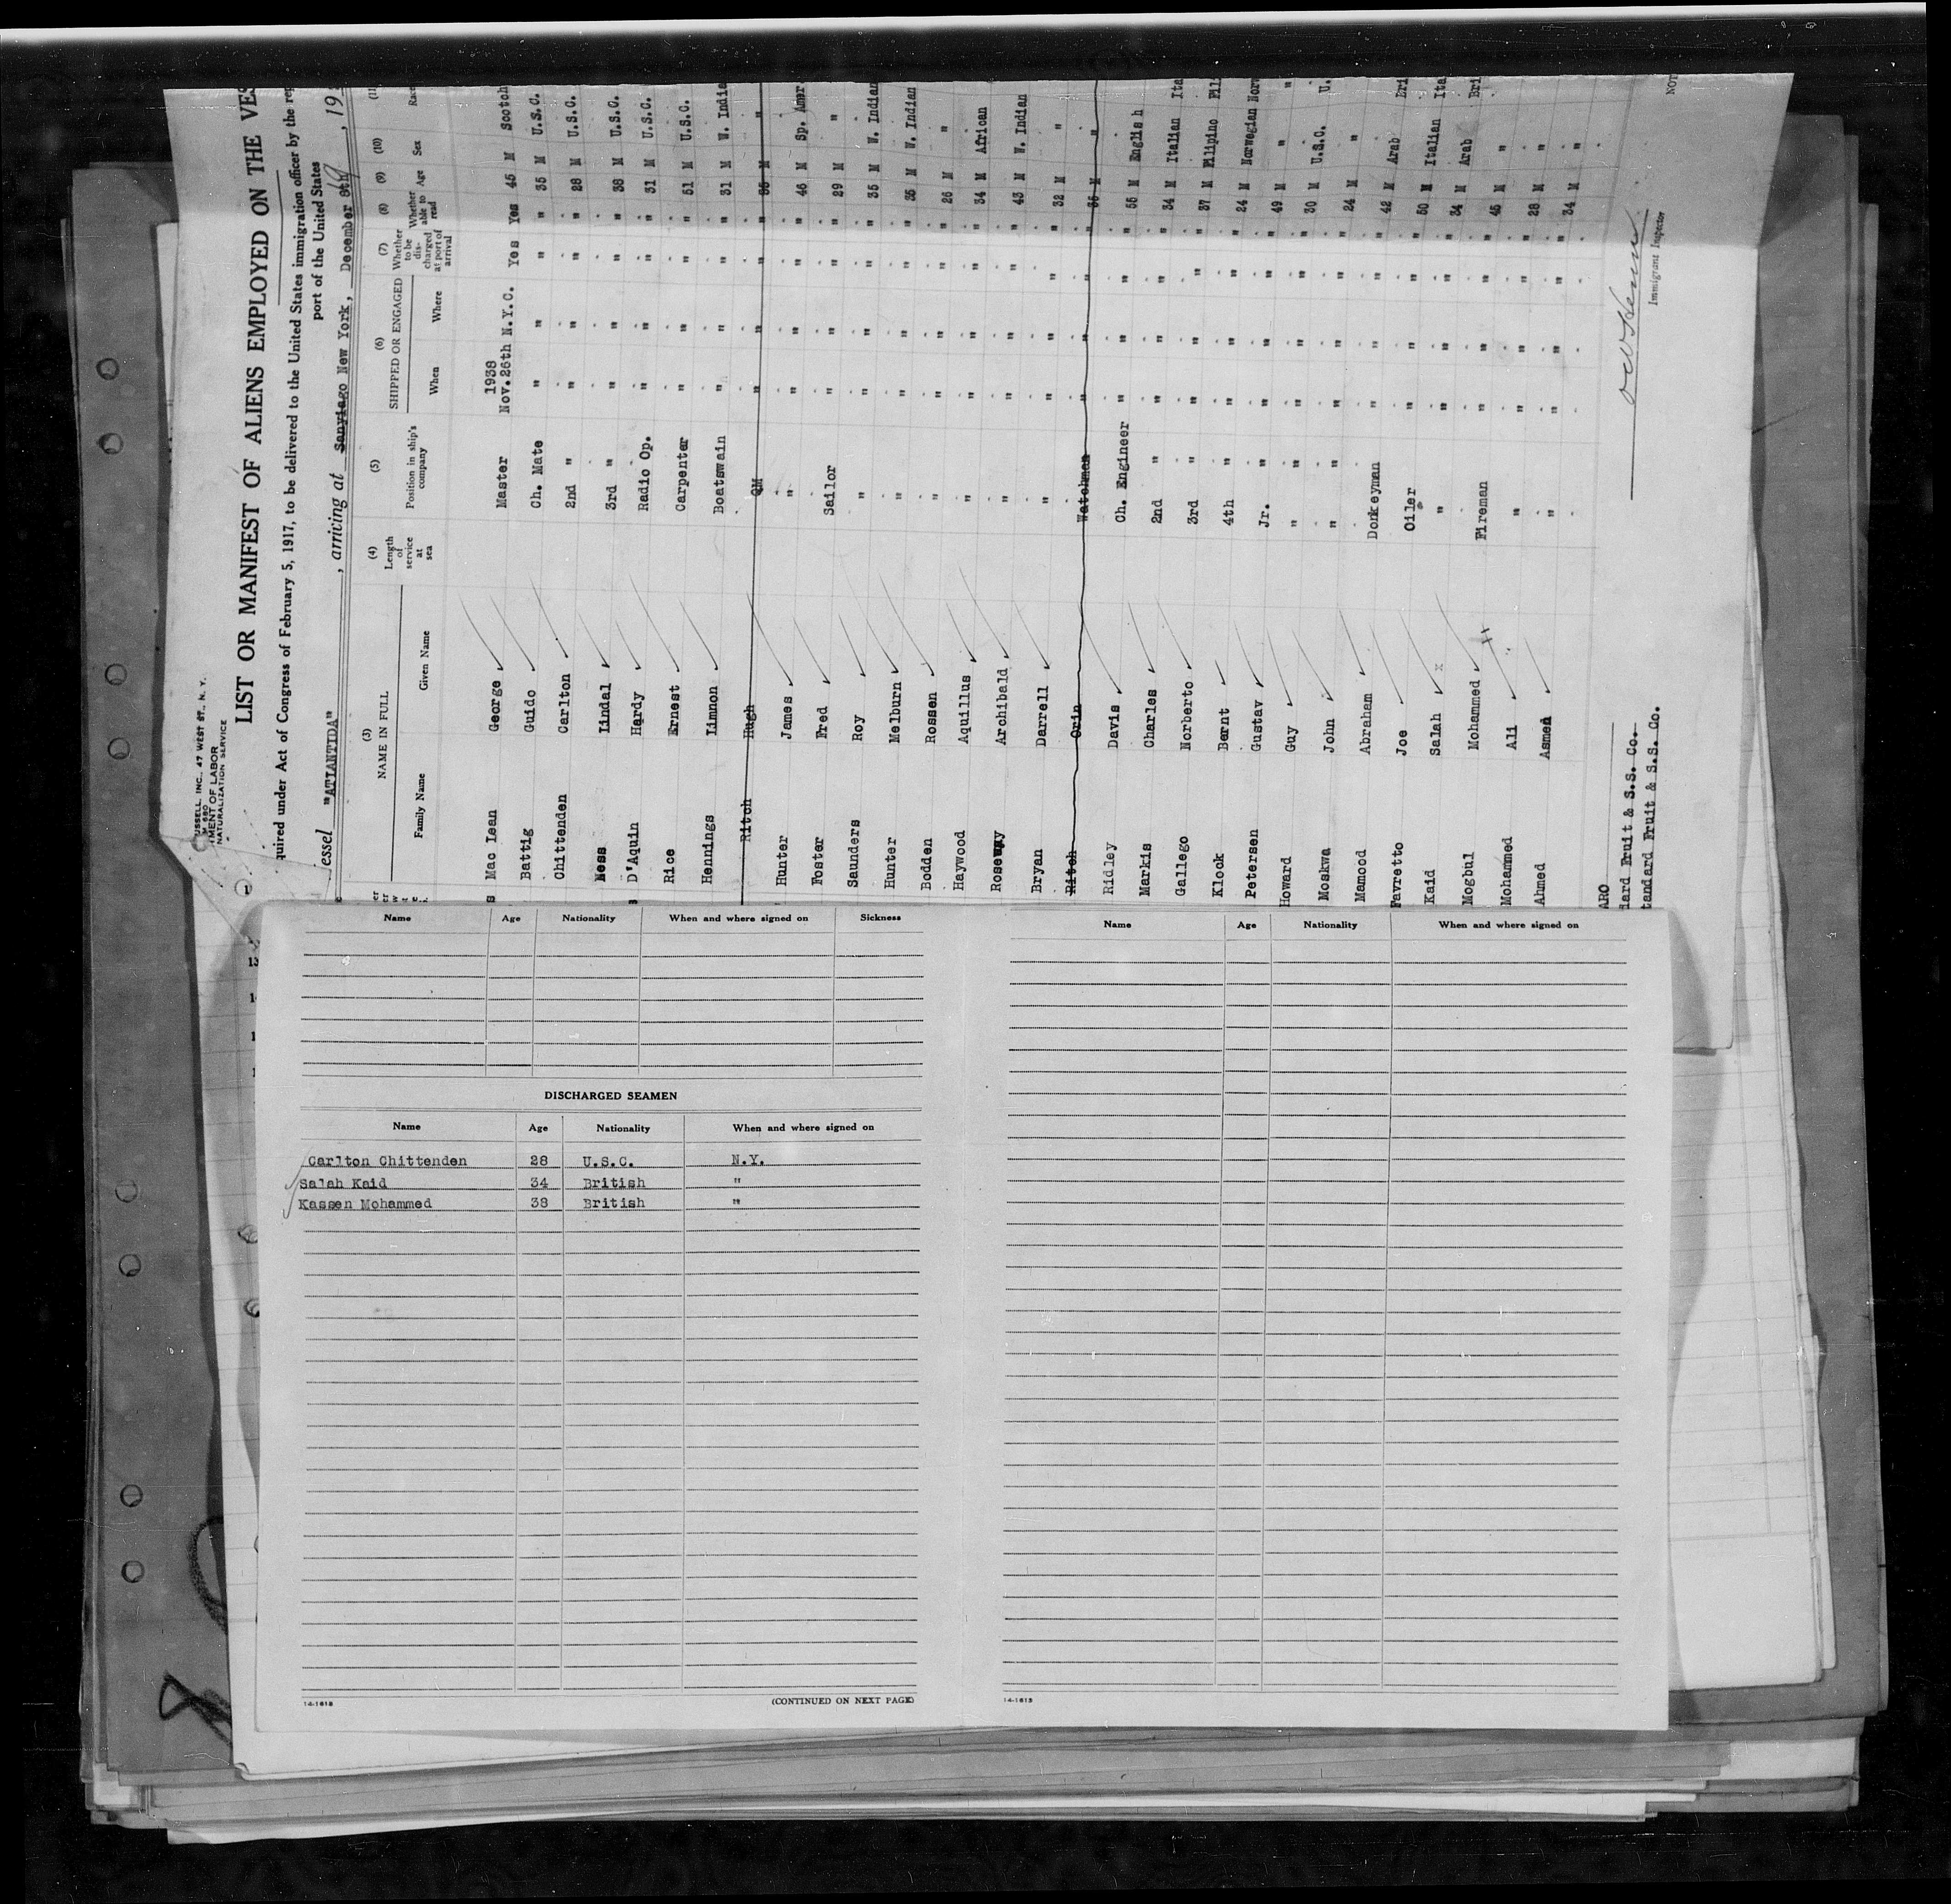 USSELL, INC., 47 WEST ST., N. Y.
M 680
MENT OF LABOR
NATURALIZATION SERVICE
LIST OR MANIFEST OF ALIENS EMPLOYED ON THE VES
quired under Act of Congress of February 5, 1917, to be delivered to the United States immigration officer by the rep
port of the United States
essel "ATLANTIDA" , arriving at Santiago New York, December 8th , 19
(3) (4) (5) (6) (7) (8) (9) (10) (11)
NAME IN FULL Length of service at sea Position in ship's company SHIPPED OR ENGAGED Whether to be discharged at port of arrival Whether able to read Age Sex Race
Family Name Given Name When Where
1938
Mac Lean George Master Nov.26th N.Y.C. Yes Yes 45 M Scotch
Battig Guido Ch. Mate " " " " 35 M U.S.C.
Chittenden Carlton 2nd " " " " " 28 M U.S.C.
Ness Lindal 3rd " " " " " 38 M U.S.C.
D'Aquin Hardy Radio Op. " " " " 31 M U.S.C.
Rice Ernest Carpenter " " " " 51 M U.S.C.
Hennings Limnon Boatswain " " " " 31 M W. India
Ritch Hugh QM " " " " M "
Hunter James " " " " " 46 M Sp. Amer
Foster Fred Sailor " " " " 29 M "
Saunders Roy " " " " " 35 M W. Indian
Hunter Melburn " " " " " 35 M W. Indian
Bodden Rossen " " " " " 26 M "
Haywood Aquillus " " " " " 34 M African
Roseway Archibald " " " " " 43 M W. Indian
Bryan Darrell " " " " " 32 M "
Ritch Orin Watchman " " " " M "
Ridley Davis Ch. Engineer " " " " 55 M English
Markis Charles 2nd " " " " " 34 M Italian Ita
Gallego Norberto 3rd " " " " " 37 M Filipino Fil
Klook Bernt 4th " " " " " 24 M Norwegian Norw
Petersen Gustav Jr. " " " " " 49 M " "
Howard Guy " " " " " " 30 M U.S.C. U.
Moskwa John " " " " " " 24 M "
Mamood Abraham Donkeyman " " " " 42 M Arab Bri
Favretto Joe Oiler " " " " 50 M Italian Ita
Kaid Salah " " " " " 34 M Arab Bri
Mogbul Mohammed Fireman " " " " 45 M "
Mohammed Ali " " " " " 28 M "
Ahmed Asmed " " " " " 34 M "
ARO
dard Fruit & S.S. Co.
tandard Fruit & S.S. Co.
Immigrant Inspector
NOT
Name Age Nationality When and where signed on Sickness
DISCHARGED SEAMEN
Name Age Nationality When and where signed on
Carlton Chittenden 28 U.S.C. N.Y.
Salah Kaid 34 British "
Kassen Mohammed 38 British "
14-1613 (CONTINUED ON NEXT PAGE)
Name Age Nationality When and where signed on
14-1613